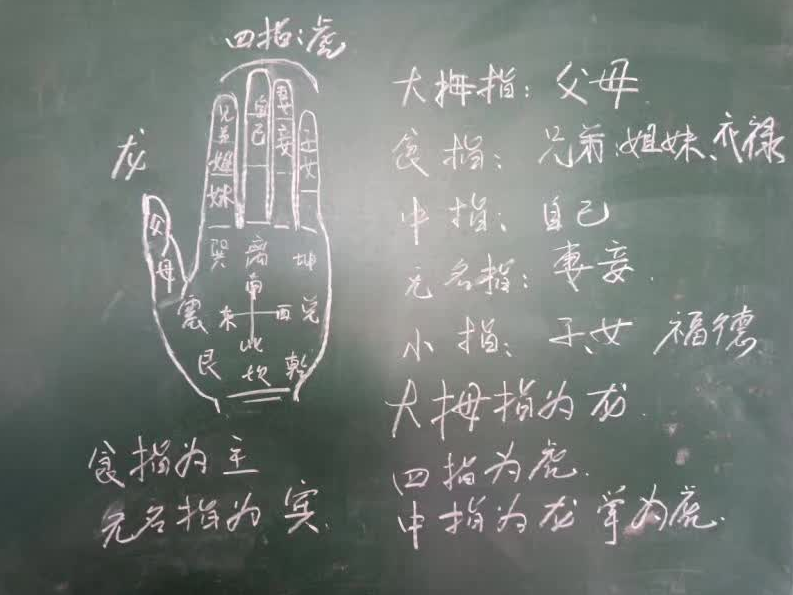 四指：虎
龙
兄弟姐妹
自己
妻妾
子女
父母
巽 离 坤
南
震 东 西 兑
北
艮 坎 乾
食指为主
无名指为宾.
大拇指：父母.
食指：兄弟、姐妹、衣禄
中指：自己
无名指：妻妾.
小指：子、女 福德
大拇指为龙.
四指为虎.
中指为龙 掌为虎.